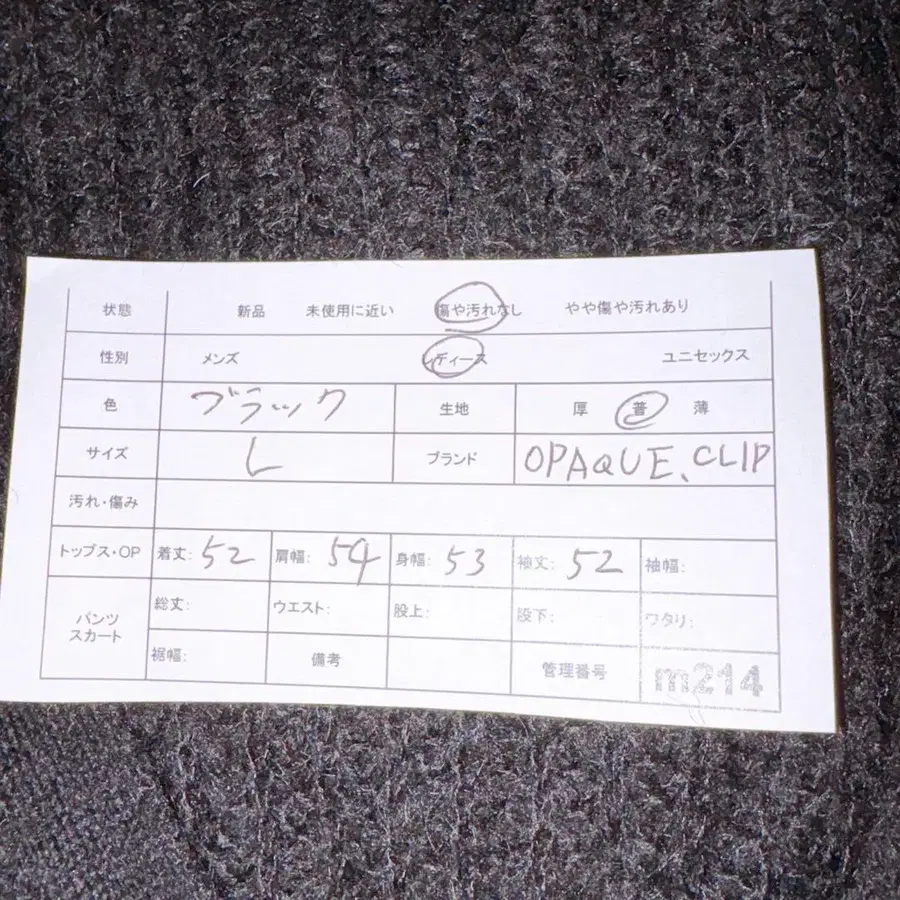 状態 新品 未使用に近い 傷や汚れなし やや傷や汚れあり
性別 メンズ レディース ユニセックス
色 ブラック 生地 厚 普 薄
サイズ L ブランド OPAQUE.CLIP
汚れ・傷み
トップス・OP 着丈: 52 肩幅: 54 身幅: 53 袖丈: 52 袖幅:
パンツ スカート 総丈: ウエスト: 股上: 股下: ワタリ:
裾幅: 備考 管理番号 m214